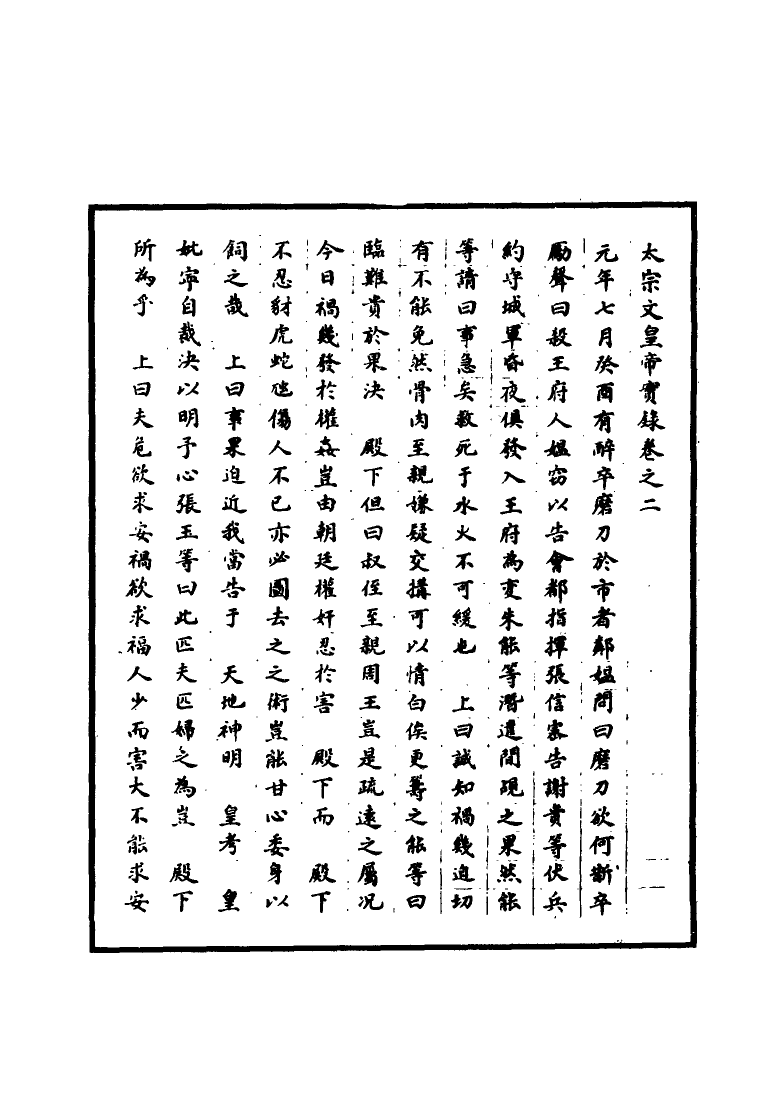 太宗文皇帝實錄卷之二
元年七月癸酉有醉卒磨刀於市者鄰媪問曰磨刀欲何斷卒
勵聲曰殺王府人媪窃以告會都指揮張信密告謝貴等伏兵
約守城軍昏夜俱發入王府為变朱能等潛遣間覘之果然能
等請曰事急矣救死于水火不可緩也 上曰誠知禍幾迫切
有不能免然骨肉至親嫌疑交搆可以情白俟更籌之能等曰
臨難貴於果決 殿下但曰叔侄至親周王豈是疏遠之屬况
今日禍幾發於權姦豈由朝廷權奸忍於害 殿下而 殿下
不忍豺虎蛇虺傷人不已亦必圖去之之術豈能甘心委身以
飼之哉 上曰事果迫近我當告于 天地神明 皇考 皇
妣寧自裁决以明予心張玉等曰此匹夫匹婦之為豈 殿下
所為乎 上曰夫危欲求安禍欲求福人少而害大不能求安